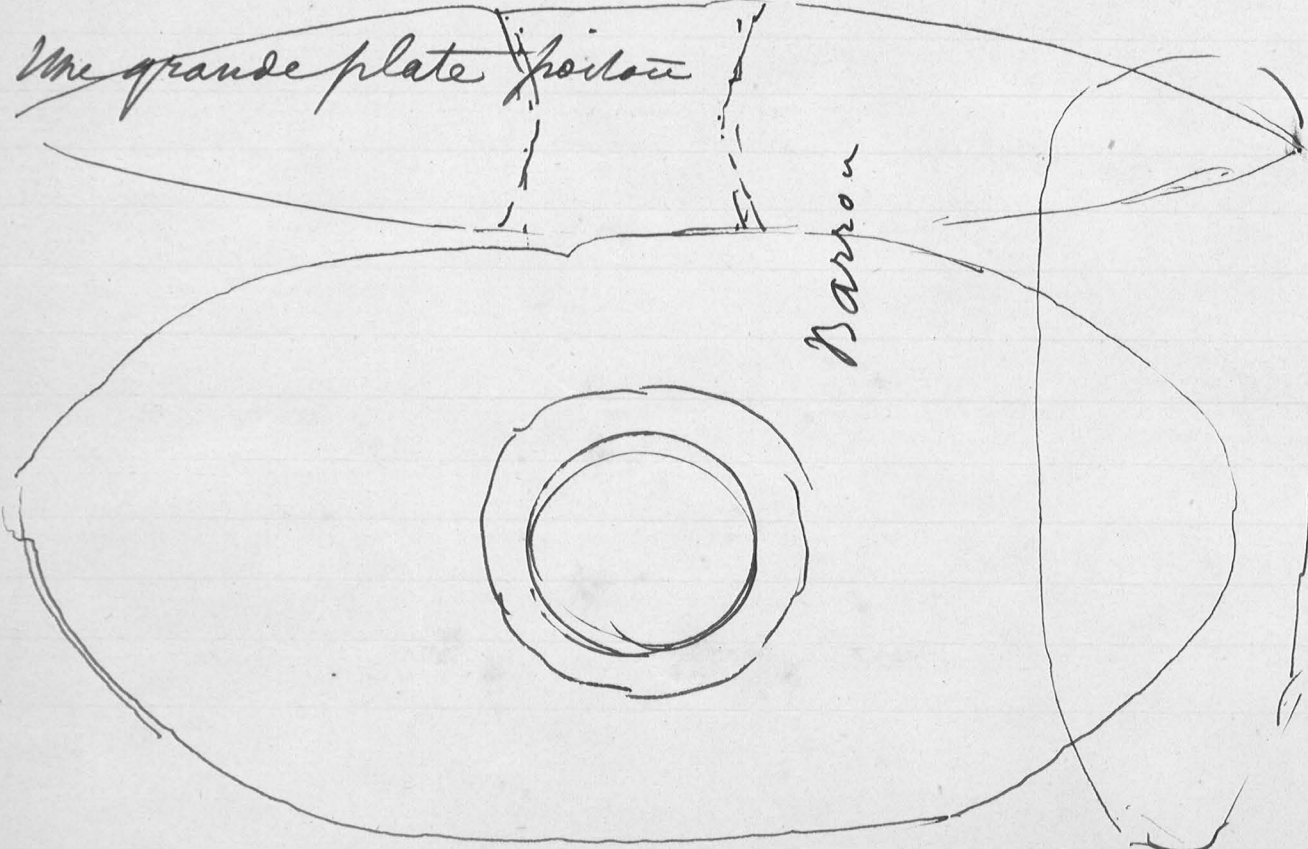 Une grande plate poitou
Barrou